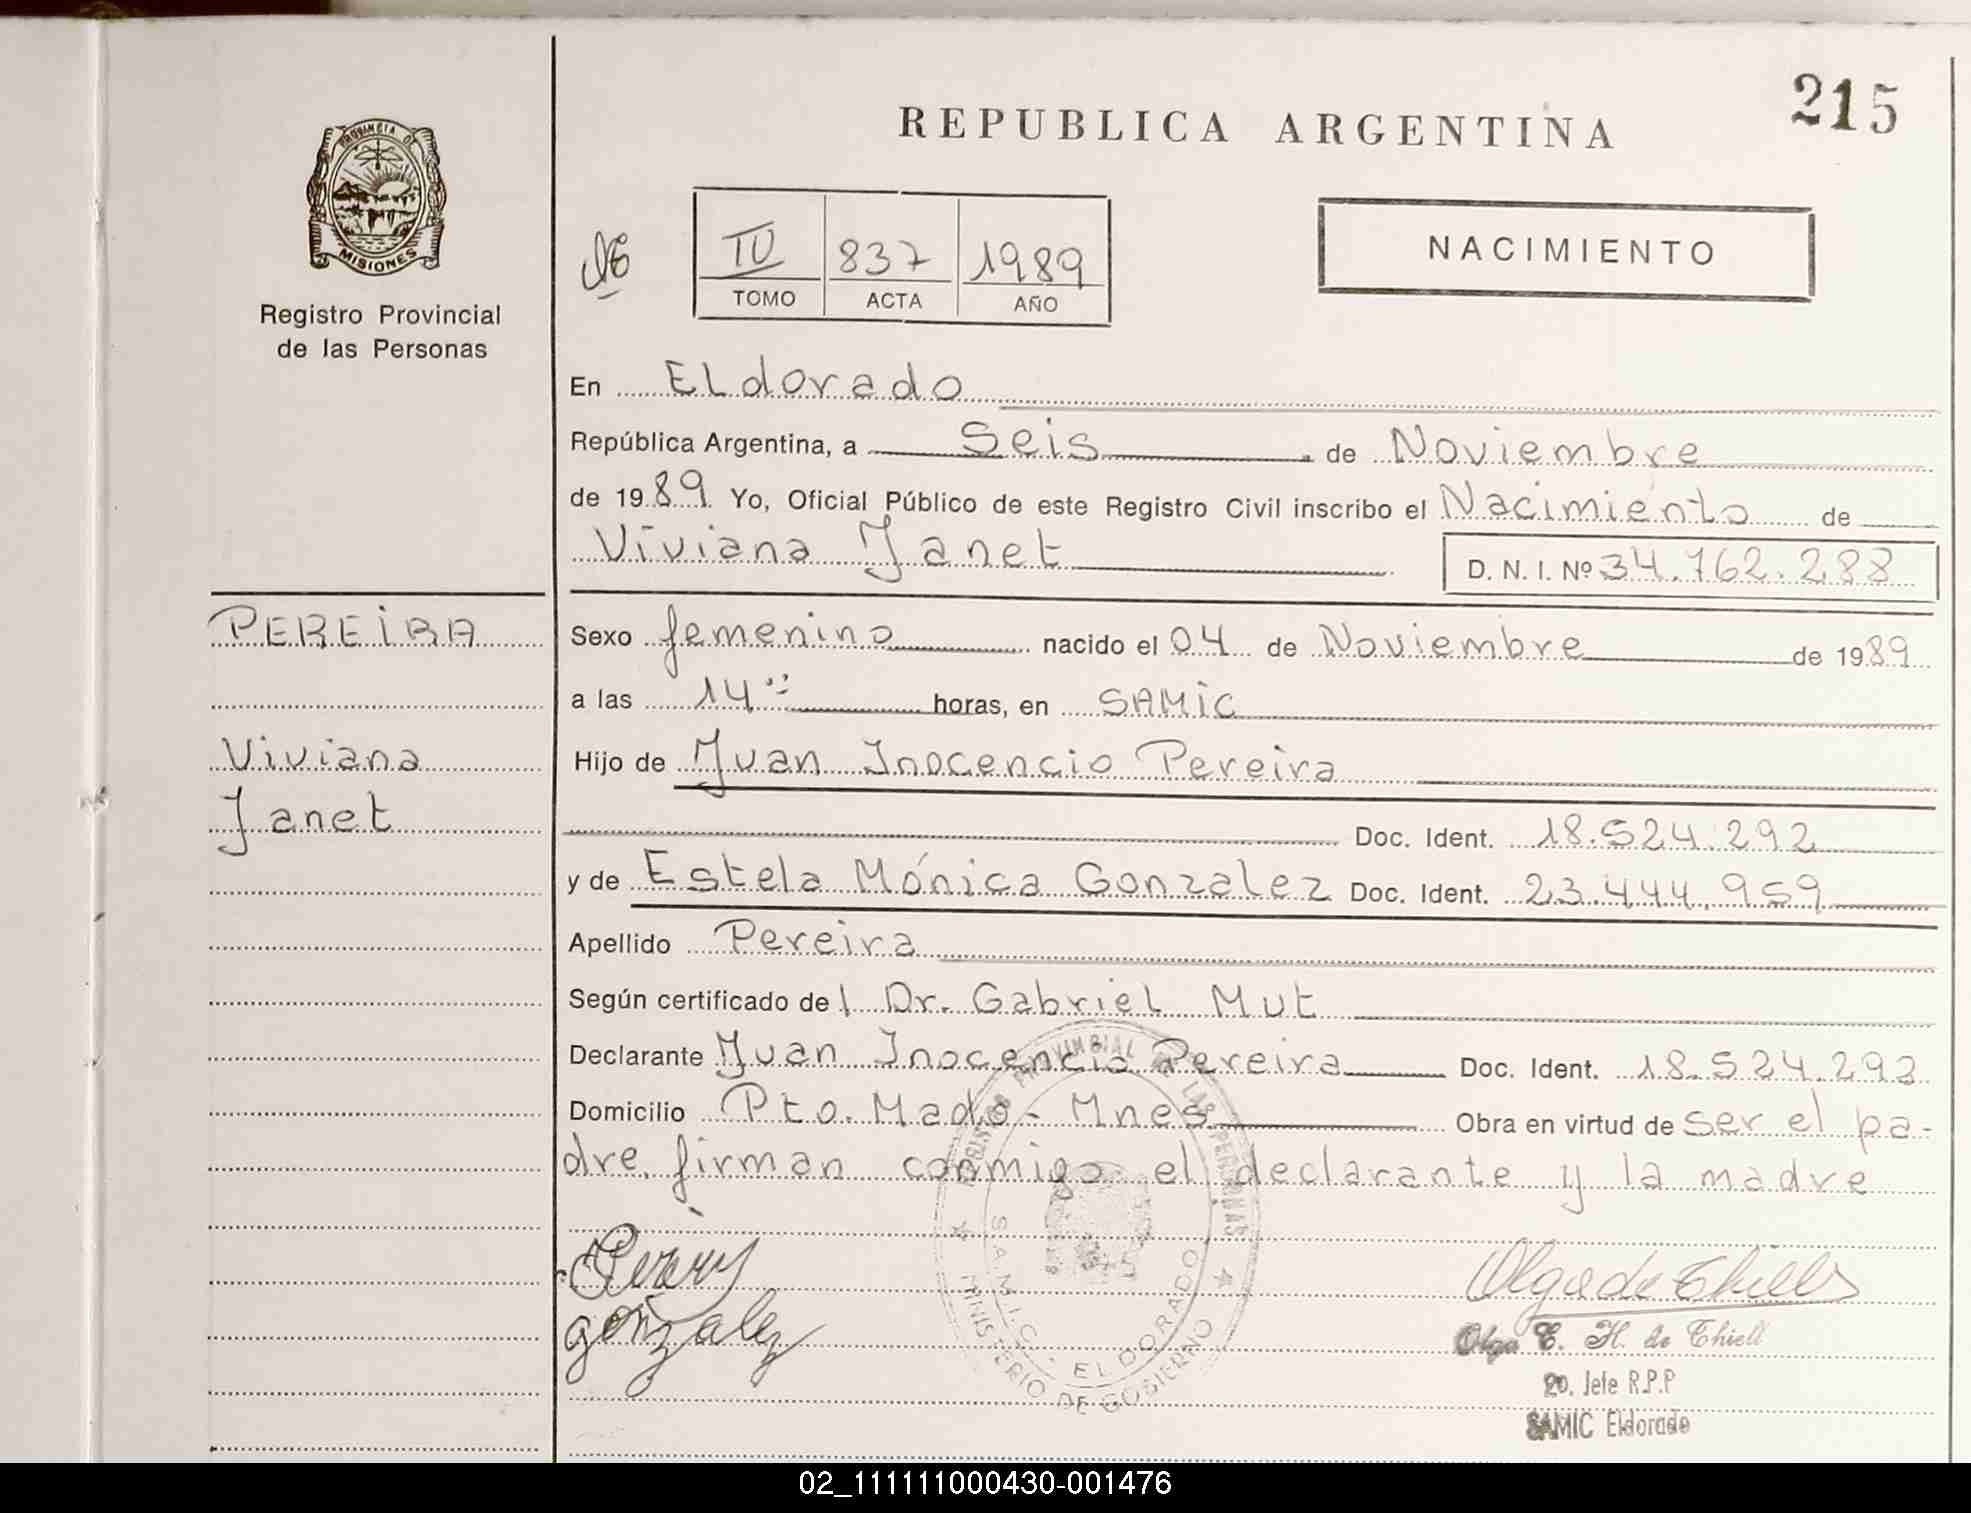 215
REPUBLICA ARGENTINA
PROVINCIA DE
MISIONES
Registro Provincial
de las Personas
IV 837 1989
TOMO ACTA AÑO
NACIMIENTO
En Eldorado
República Argentina, a Seis de Noviembre
de 1989 Yo, Oficial Público de este Registro Civil inscribo el Nacimiento de
Viviana Janet D. N. I. Nº 34.762.288
PEREIRA
Viviana
Janet
Sexo femenino nacido el 04 de Noviembre de 1989
a las 14 horas, en SAMIC
Hijo de Juan Inocencio Pereira
Doc. Ident. 18.524.292
y de Estela Mónica Gonzalez Doc. Ident. 23.444.959
Apellido Pereira
Según certificado del Dr. Gabriel Mut
Declarante Juan Inocencio Pereira Doc. Ident. 18.524.292
Domicilio Pto. Mado - Mnes Obra en virtud de ser el pa-
dre, firman conmigo el declarante y la madre
REGISTRO PROVINCIAL DE LAS PERSONAS
S.A.M.I.C. - ELDORADO
MINISTERIO DE GOBIERNO
gonzalez
Olga de Thiell
Olga E. H. de Thiell
2º. Jefe R.P.P
SAMIC Eldorado
02_111111000430-001476